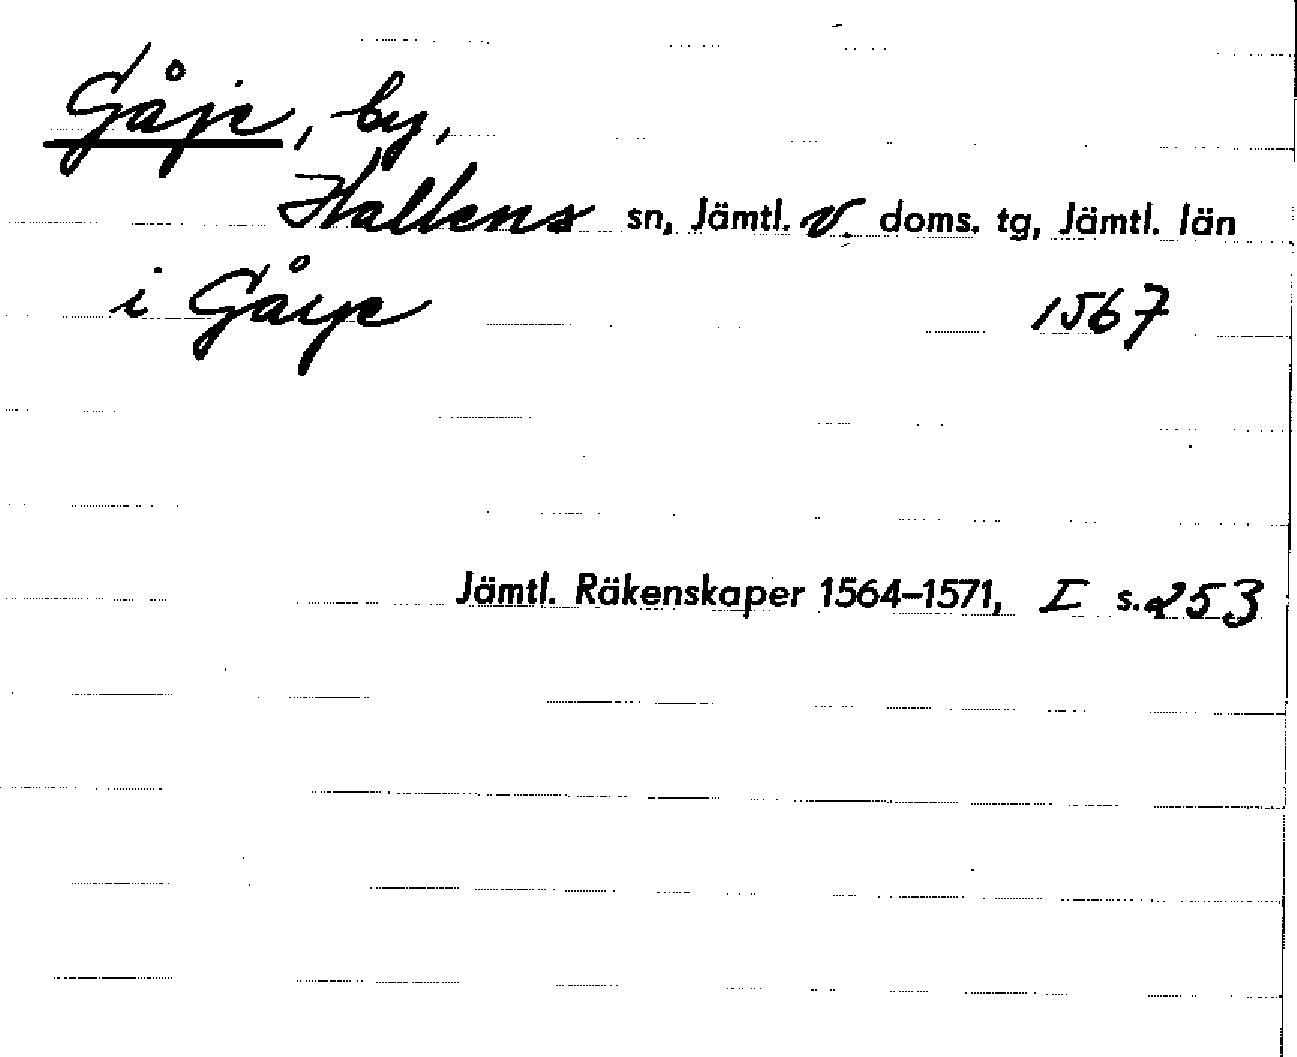 Gåje, by,
Hallens sn, Jämtl. v. doms. tg, Jämtl. län
i Gåye 1567
Jämtl. Räkenskaper 1564–1571, I s. 253